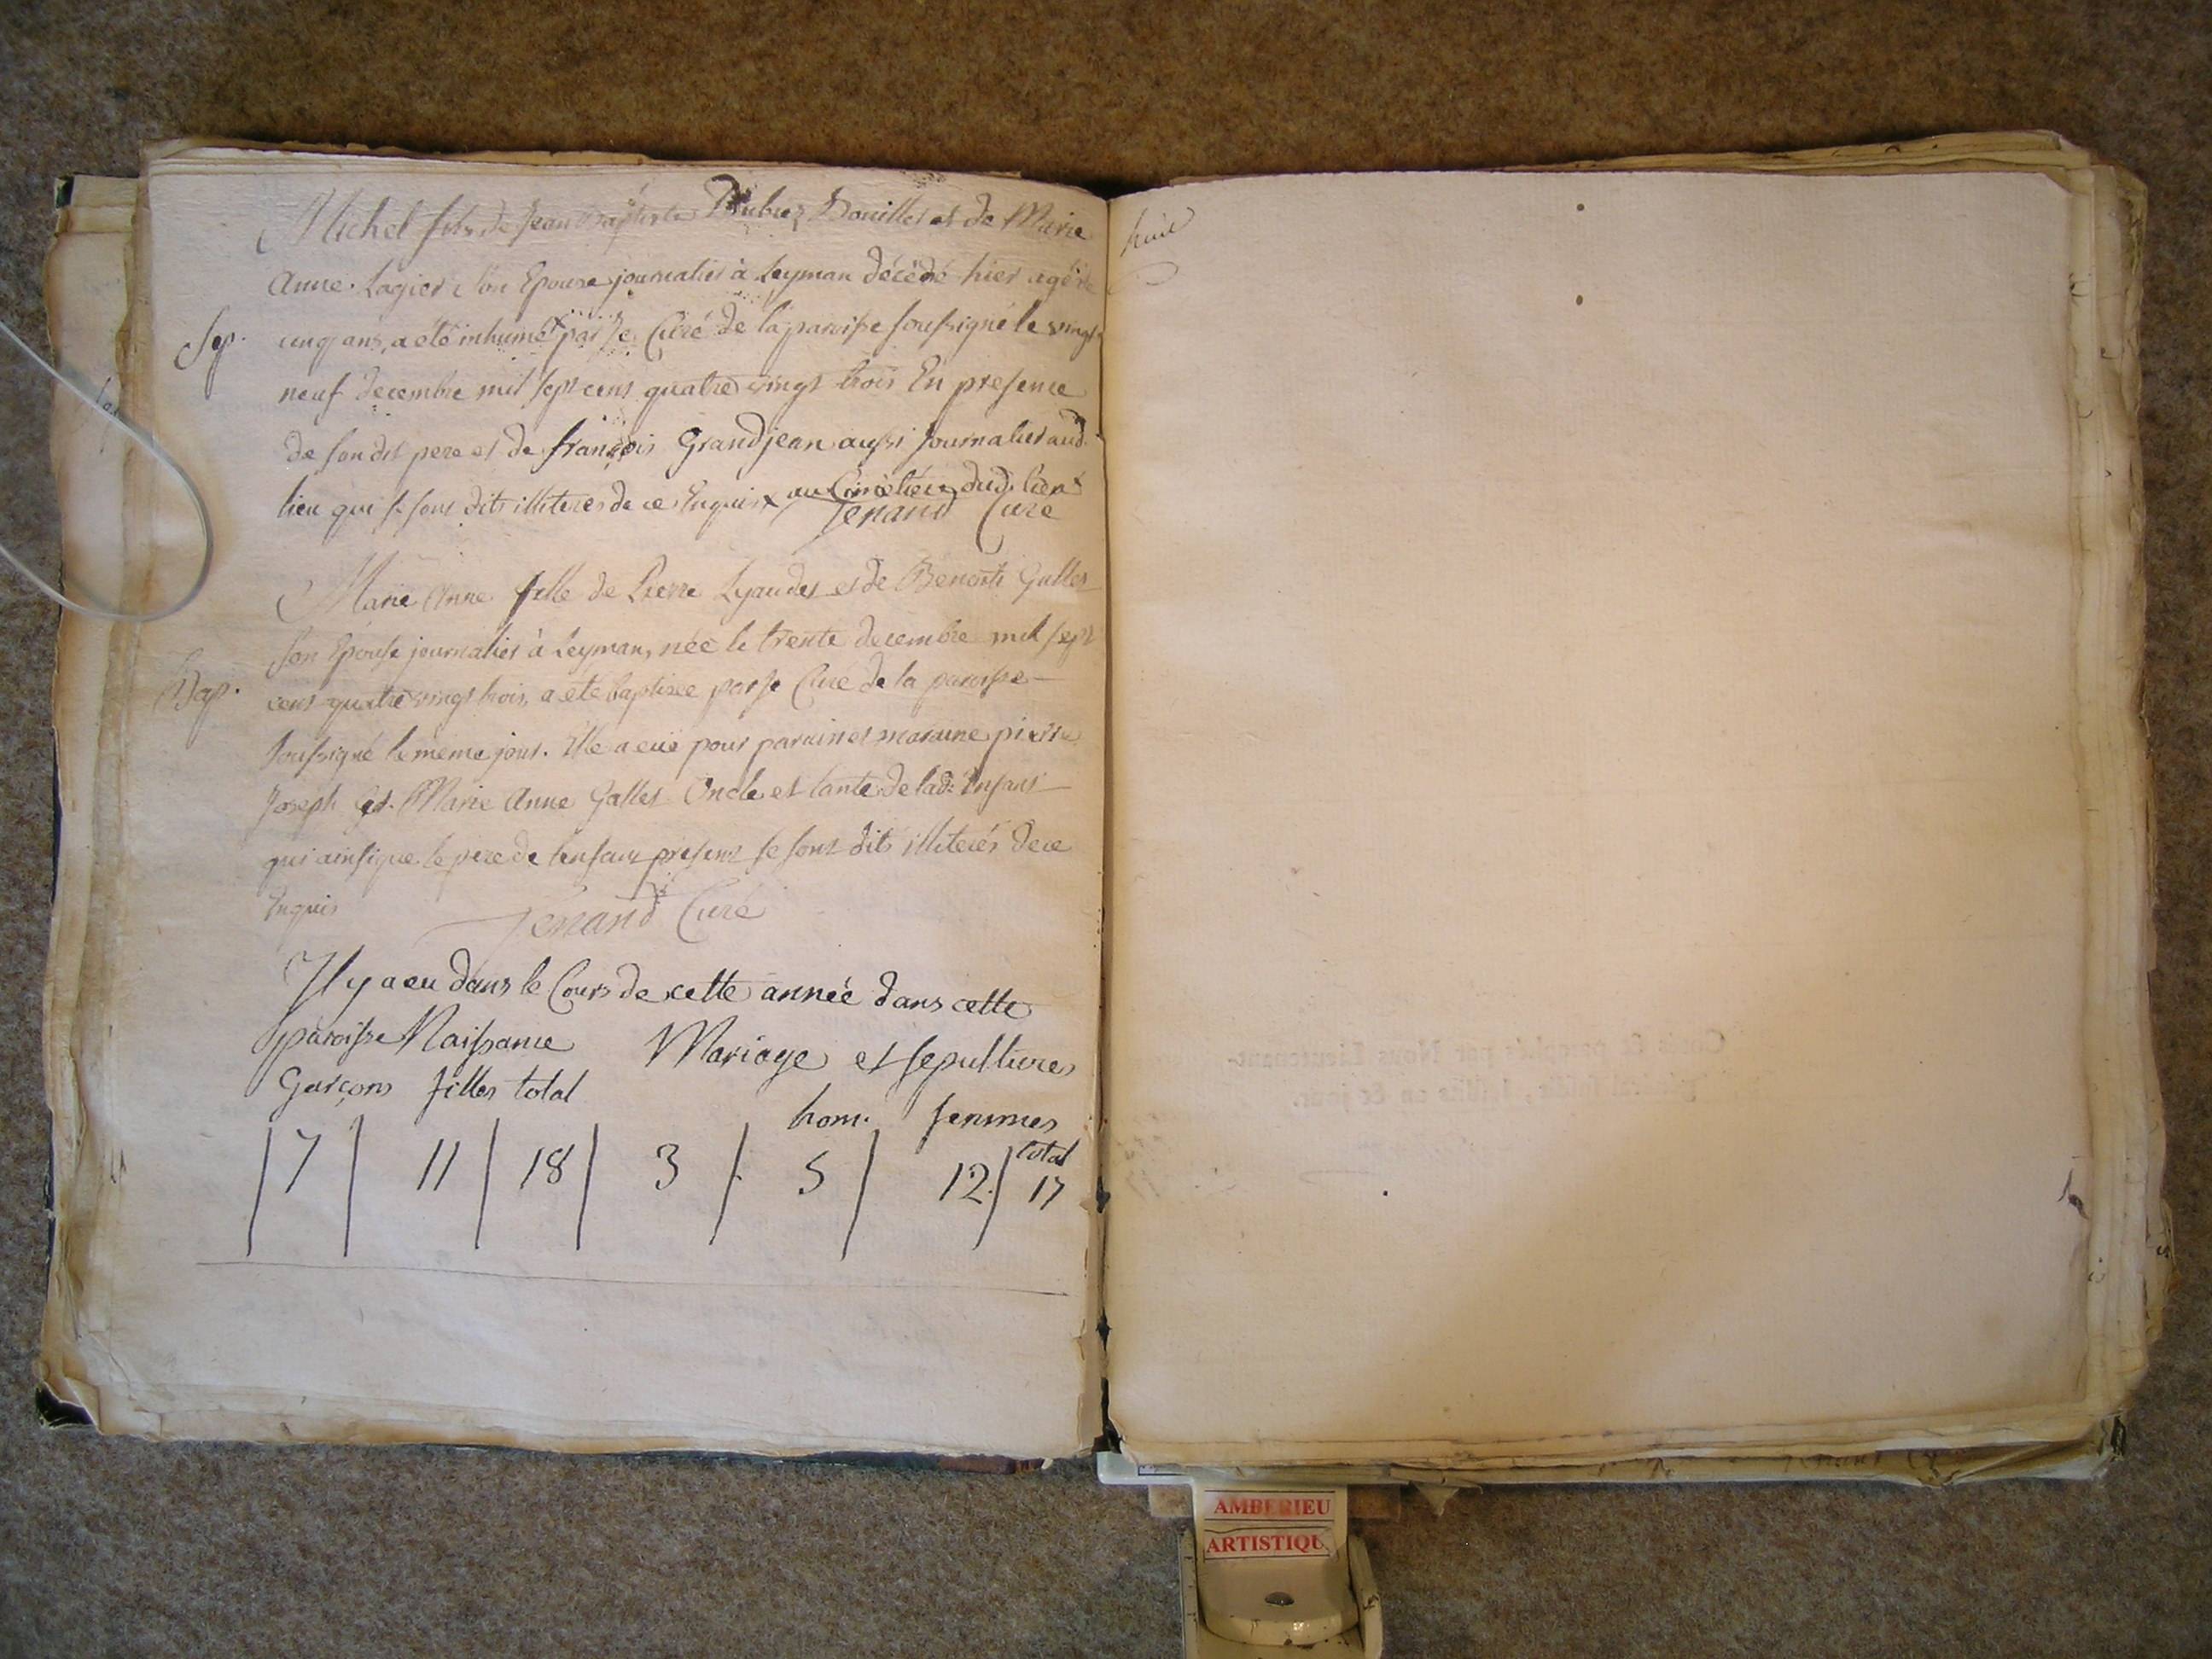 Michel fils de Jean Baptiste Bouillet et de Marie
Anne Lagier son Epouse journalier à Leyman décédé hier agé de
Sep. cinq ans, a été inhumé x par Je Curé de la paroisse soussigné le vingt
neuf decembre mil sept cens quatre vingt trois En presence
de son dit pere et de françois Grandjean aussi Journalier aud.
lieu qui se sont dits illiterés de ce Enquis x au Cimetiere dud. lieu
Jenand Curé
Marie Anne fille de Pierre Lyaudet et de Benoite Gallet
son Epouse journalier à Leyman, née le trente decembre mil sept
Bap. cens quatre vingt trois, a été baptisée par Je Curé de la paroisse
soussigné le même jour. Elle a eue pour parain et maraine pierre
Joseph et Marie Anne Gallet Oncle et tante de lad: Enfant
qui ainsi que le pere de l'enfant present se sont dits illiterés de ce
Enquis
Jenand Curé
Il y a eu dans le Cours de cette année dans cette
paroisse Naissance Mariage et sepultures
Garçons filles total
hom. femmes
total
7 11 18 3 5 12. 17
huit
Cotté & paraphés par Nous Lieutenant-
AMBERIEU
ARTISTIQU